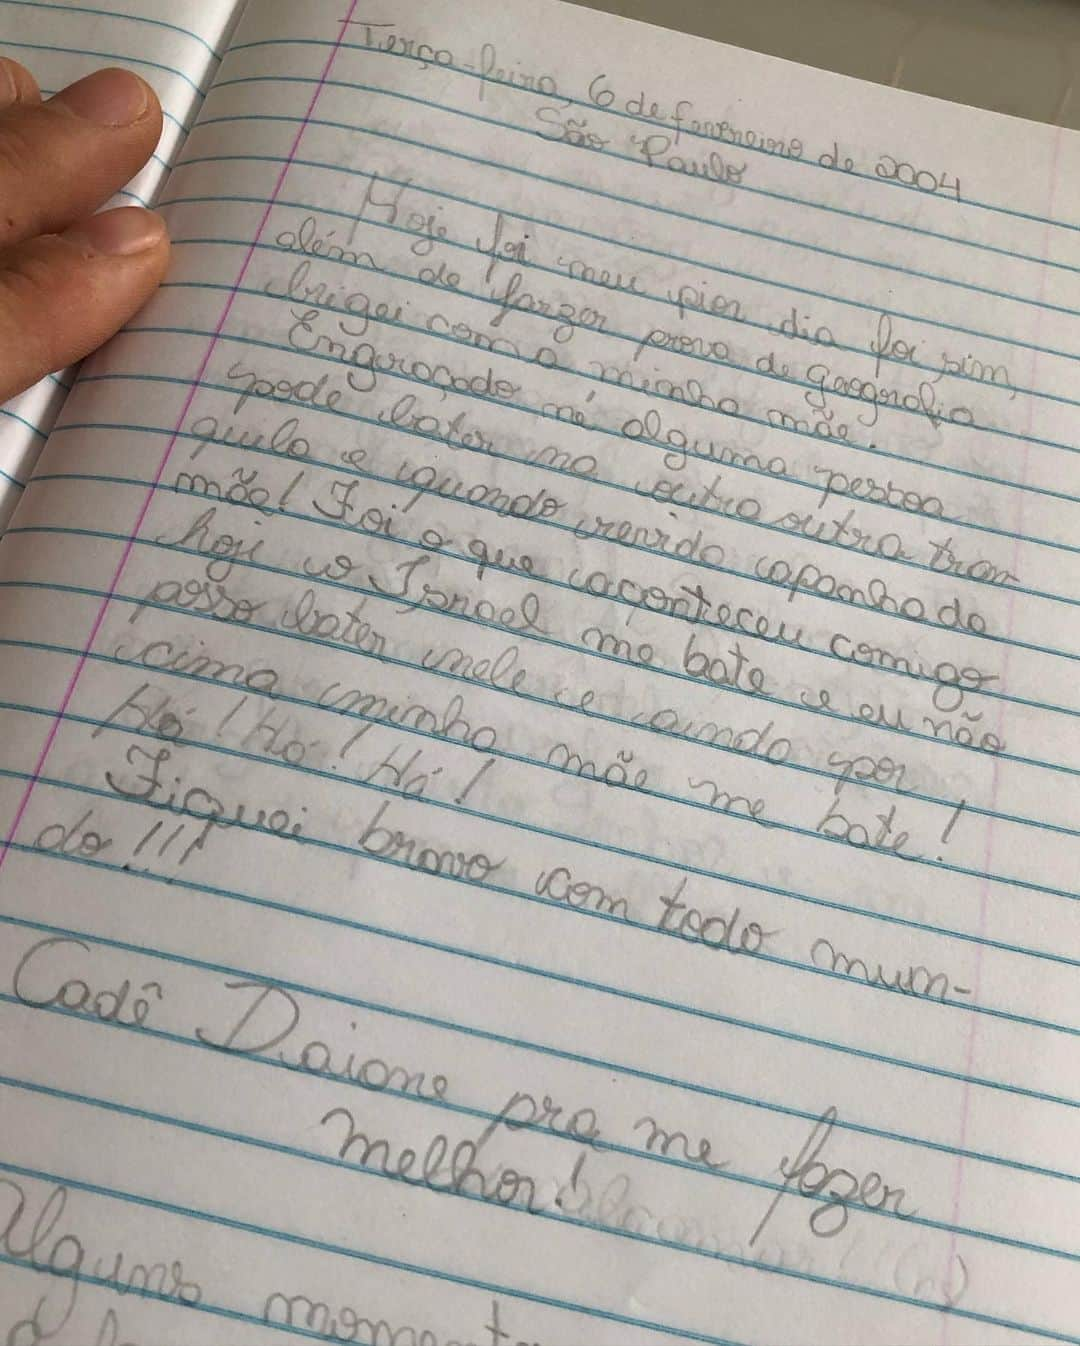 Terça-feira, 6 de fevereiro de 2004
São Paulo
Hoje foi meu pior dia foi sim,
além de fazer prova de geografia
briguei com a minha mãe.
Engraçado né alguma pessoa
pode bater na outra outra tran
quila e quando revido apanho da
mãe! Foi o que aconteceu comigo
hoje o Israel me bate e eu não
posso bater nele e ainda por
cima minha mãe me bate!
Há! Há! Há!
Fiquei bravo com todo mun-
do!!!
Cadê Daiane pra me fazer
melhor!
Alguns